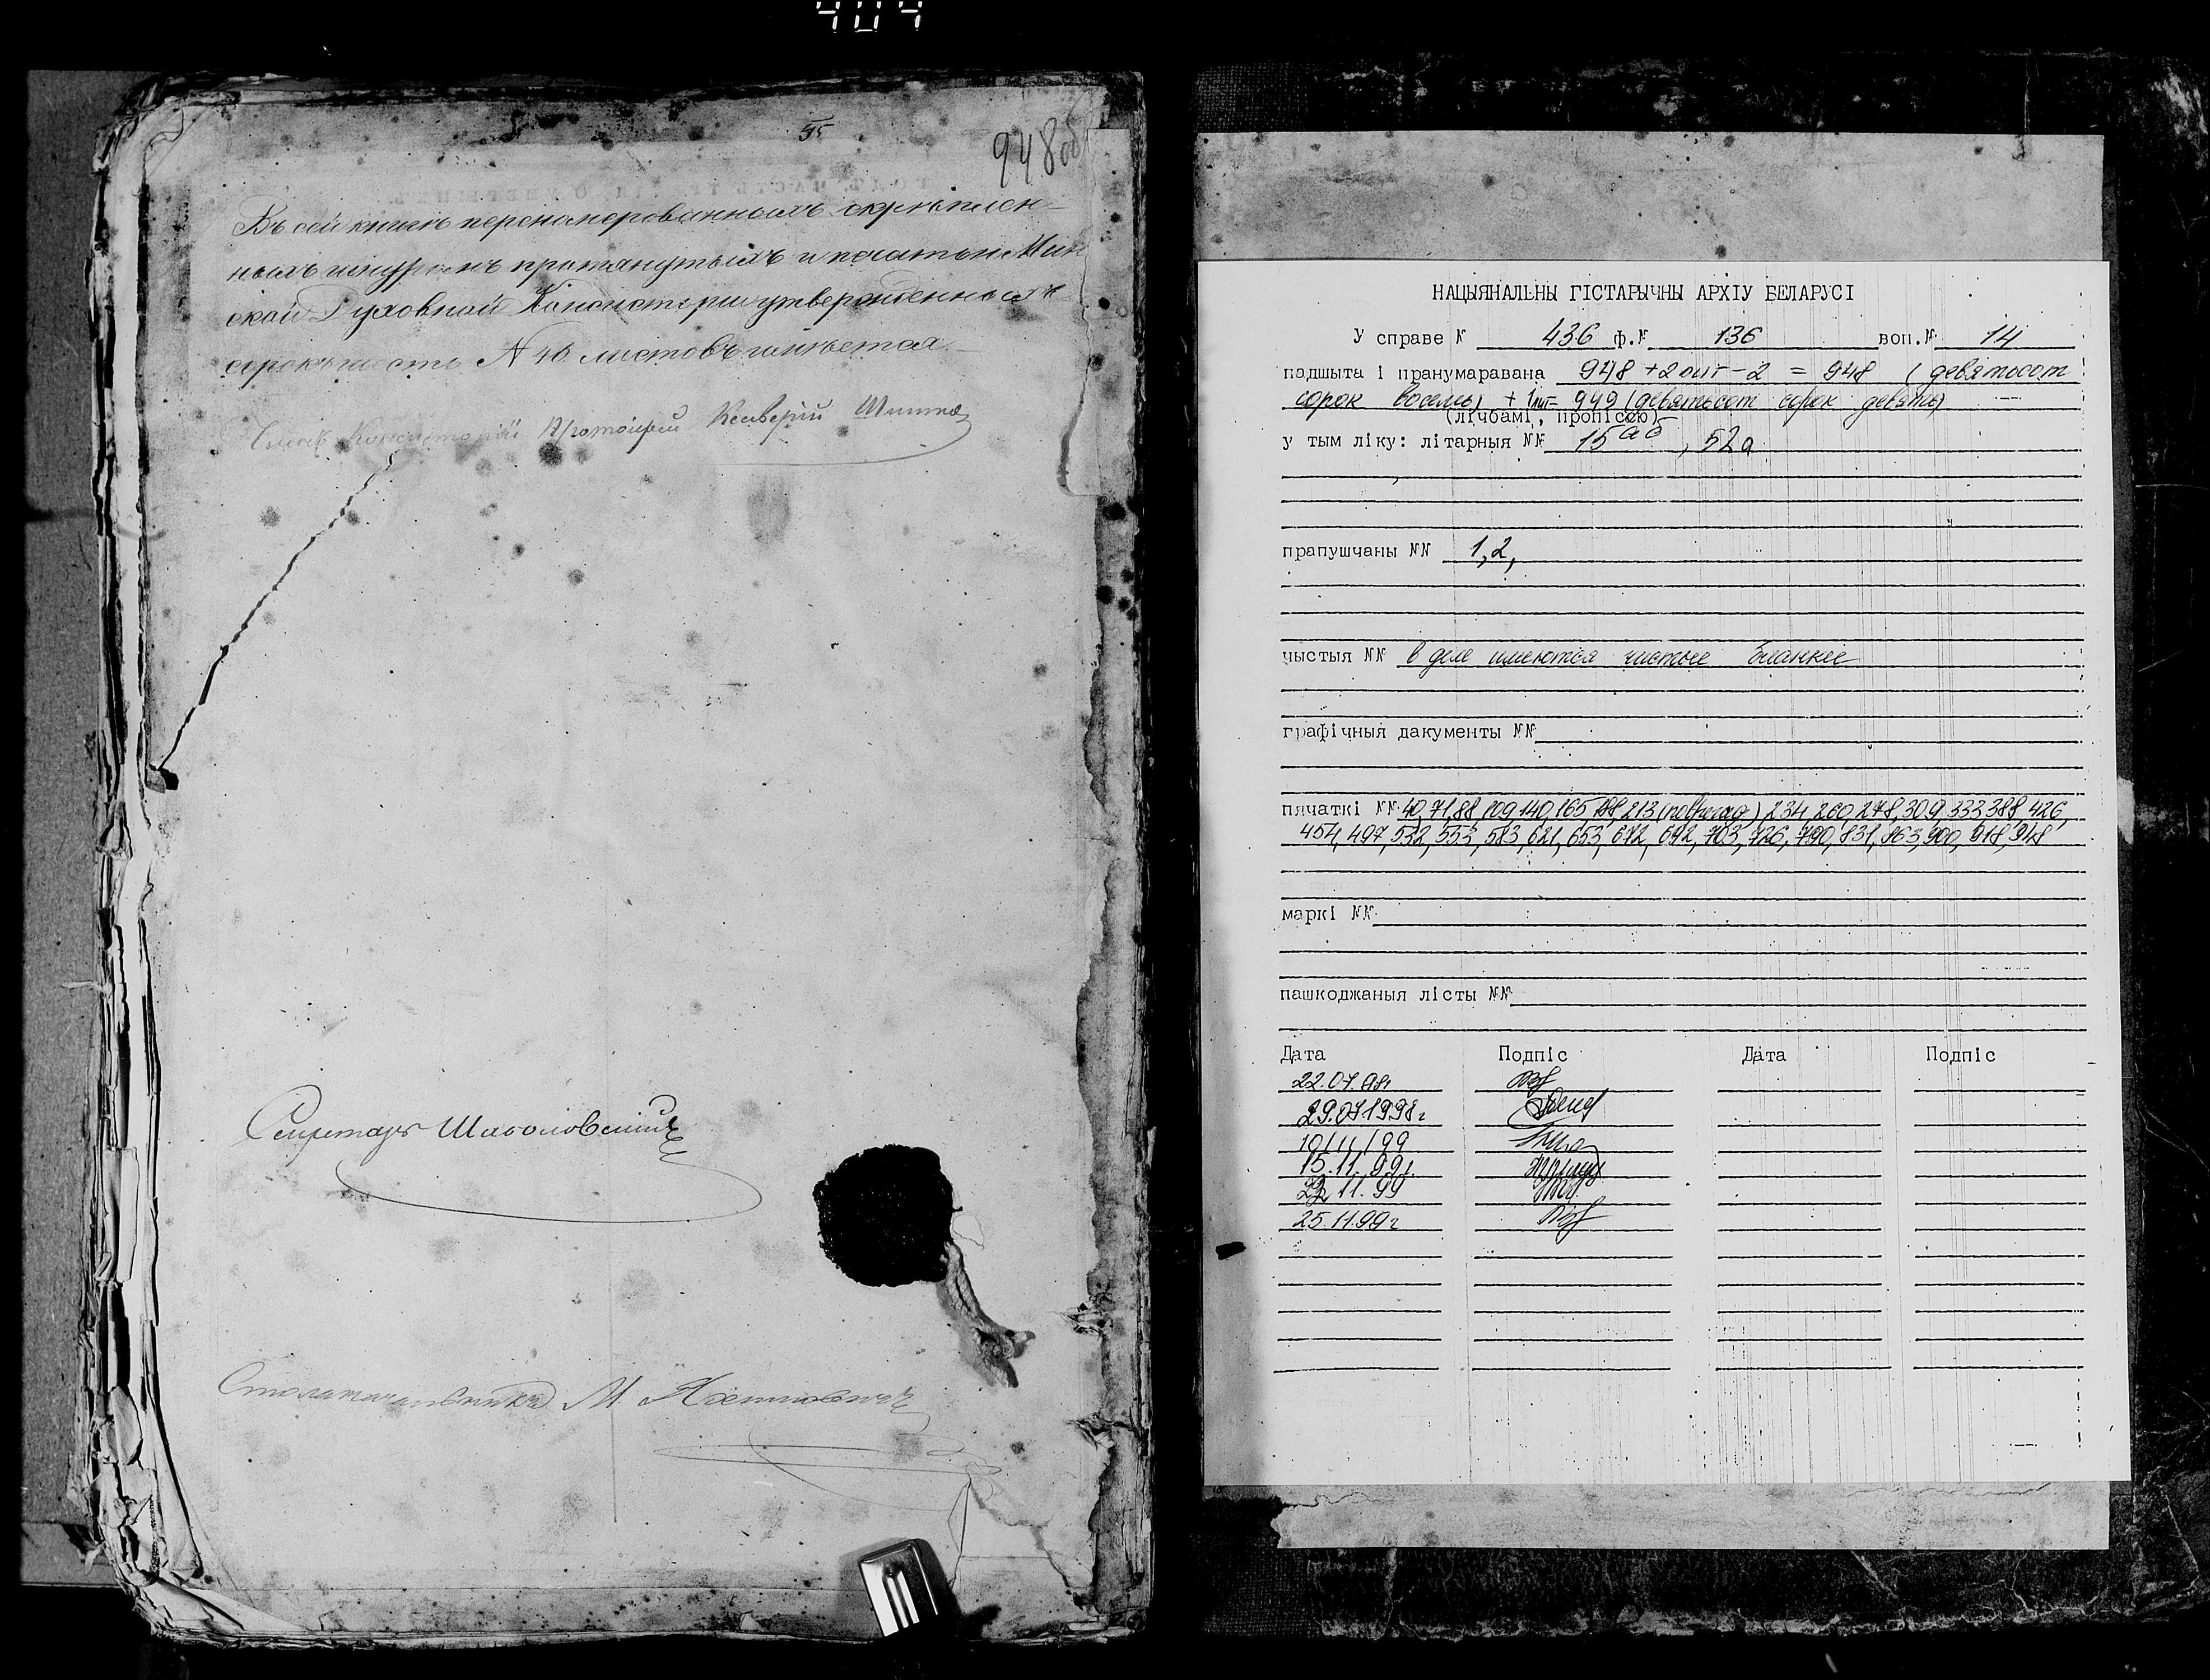 404
948об
Въ сей книгѣ перенамерованныхъ скрѣплен-
ныхъ шнуромъ протянутыхъ и печатью Мин
ской Духовной Консисторіи утвержденныхъ
сорокъ шесть N 46 листовъ имѣется
Членъ Консисторіи Протоіерей
Секретарь
Столоначальникъ М.
НАЦЫЯНАЛЬНЫ ГІСТАРЫЧНЫ АРХІУ БЕЛАРУСІ
У справе N 436 ф.N 136 воп.N 14
падшыта і пранумаравана 948 + 2 лит - 2 = 948 (девятьсот
сорок восемь) + 1 лит = 949 (девятьсот сорок девять)
(лічбамі, пропіссю)
у тым ліку: літарныя NN 15аб, 52а
прапушчаны NN 1,2,
чыстыя NN в деле имеются чистые бланки
графічныя дакументы NN
пячаткі NN 40,71,88,109,140,165,188,213(поврежд) 234,260,278,309,333,388,426,
454,497,532,553,583,621,653,672,692,703,726,790,831,863,900,918,948
маркі NN
пашкоджаныя лісты NN
Дата Подпіс Дата Подпіс
22.07.98г
29.07.1998г
10/11/99
15.11.99г.
11.99
25.11.99г